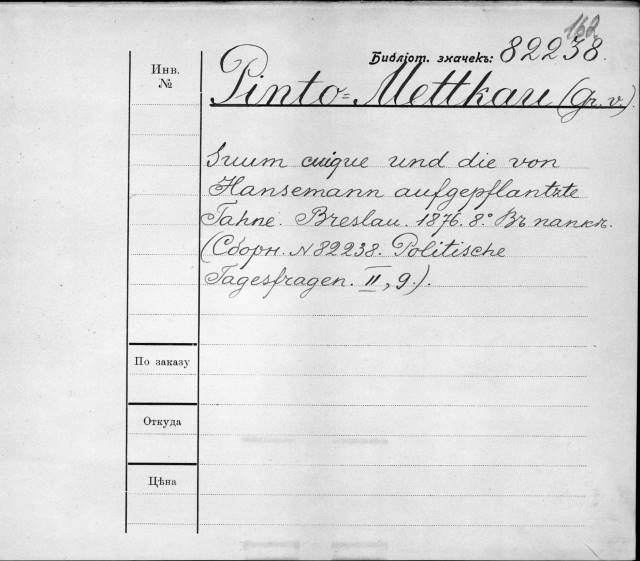 162
Библіот. значекъ: 82238.
Инв.
№
Pinto-Mettkau (Gr. v.)
Suum cuique und die von
Hansemann aufgepflantzte
Fahne. Breslau. 1876. 8.° Въ папкѣ.
(Сборн. N 82238. Politische
Tagesfragen. II, 9.).
По заказу
Откуда
Цѣна